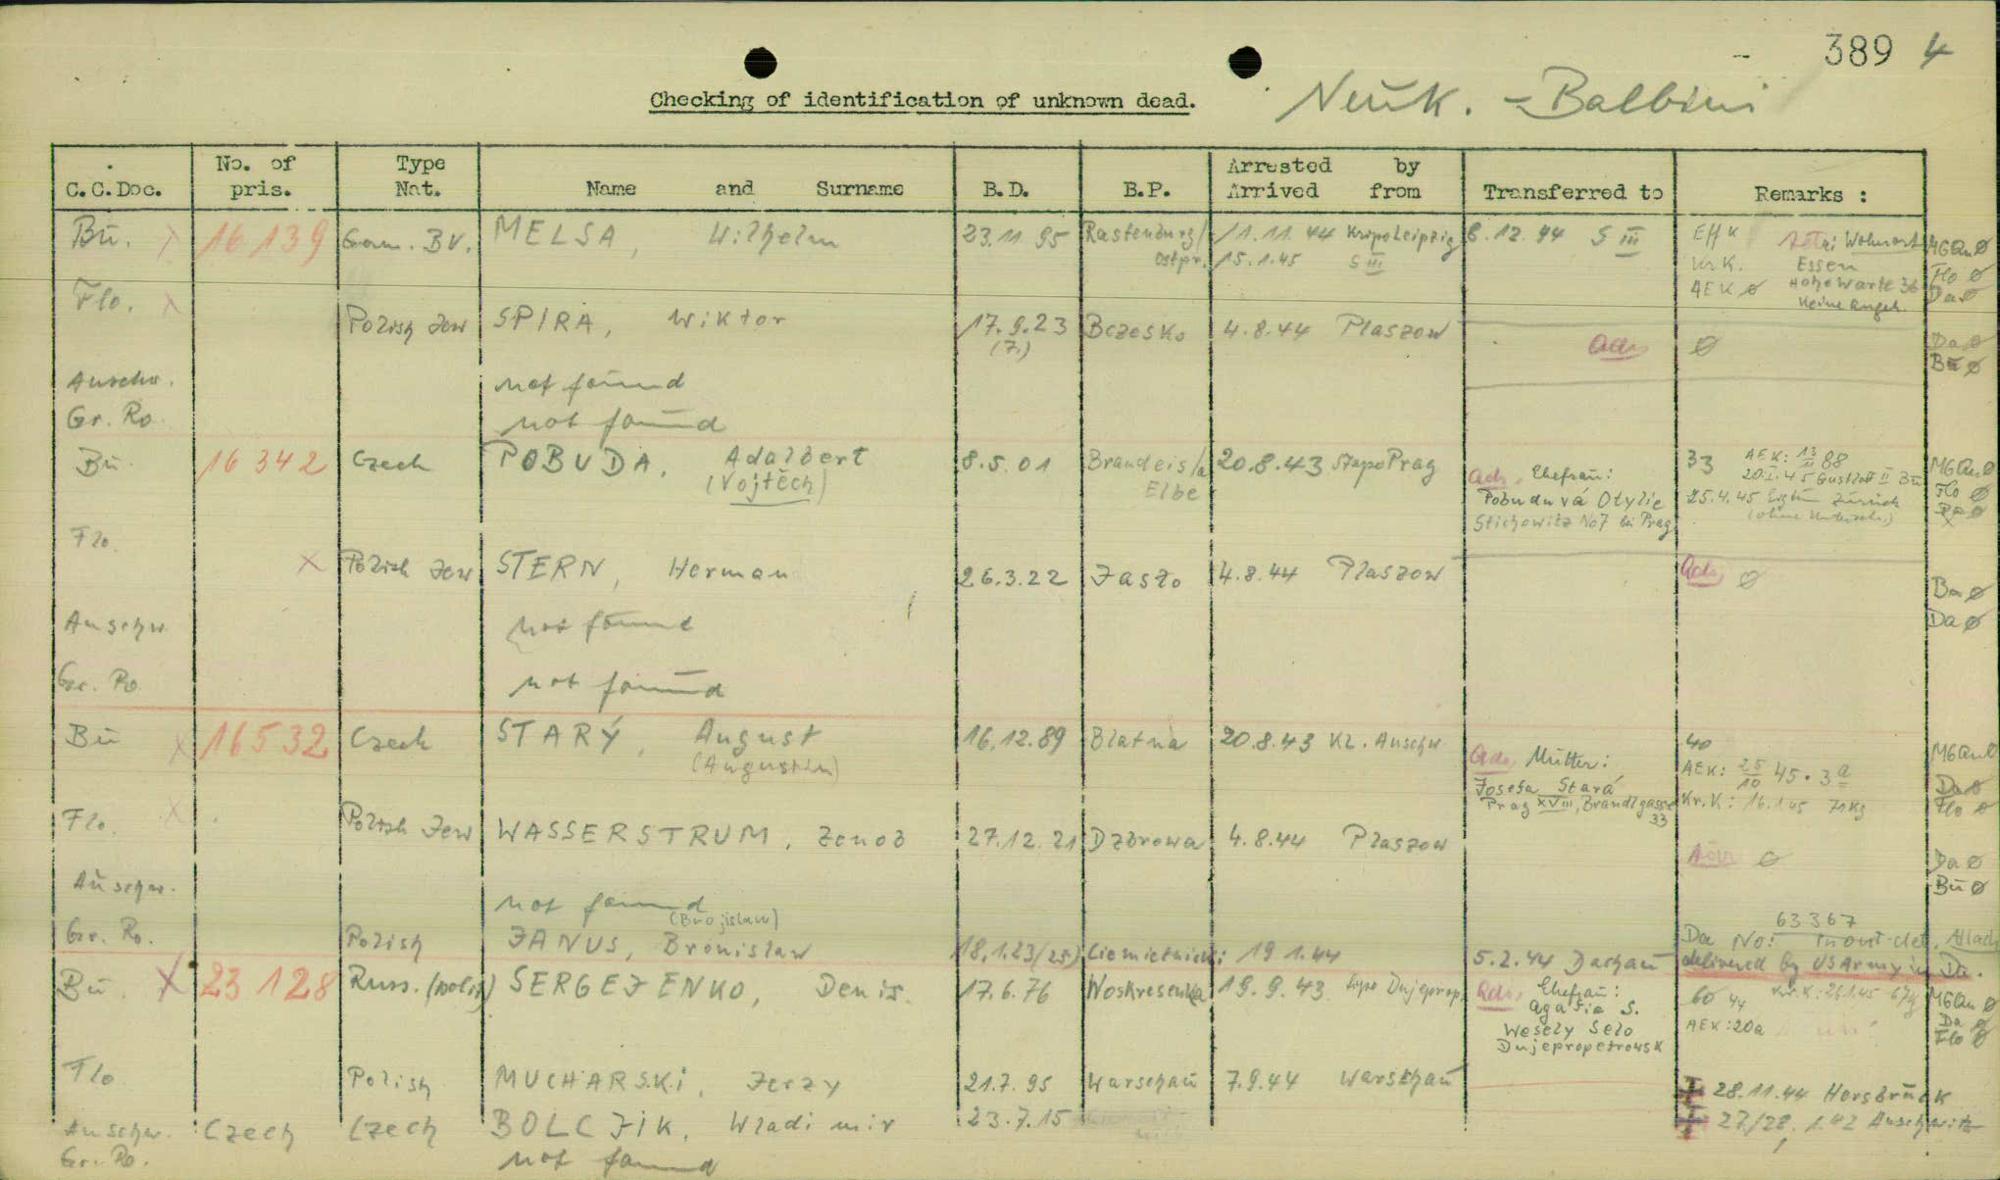 389 4
Checking of identification of unknown dead. Neuk. - Balbini
C.C.Doc. No. of pris. Type Nat. Name and Surname B.D. B.P. Arrested by Arrived from Transferred to Remarks :
Bu. X 16139 Gem. BV. MELSA, Wilhelm 23.11.95 Rastenburg/ 11.11.44 Kripo Leipzig 8.12.44 S III Eff K Wohnort MGQu Ø
Ostpr. 15.1.45 S III Kr. K. Essen Flo Ø
AEK Ø Hohe Warte 36 Da Ø
Keine Angeh.
Flo. X Polish Jew SPIRA, Wiktor 17.9.23 Bczesko 4.8.44 Plaszow Ø Da Ø
(7.) Bu Ø
Auschw. not found
Gr. Ro. not found
Bu. 16342 Czech POBUDA, Adalbert 8.5.01 Brandeis/a 20.8.43 Stapo Prag 33 AEK: 13/11 88 MGQu Ø
(Vojtěch) Elbe Adr. Ehefrau: 20.I.45 Gustloff II Bu Flo Ø
Pobuduvá Otylie 25.4.45
Stichowitz No 7 bei Prag
Flo. X Polish Jew STERN, Herman 26.3.22 Jasło 4.8.44 Plaszow Adr. Ø Bu Ø
Auschw. not found Da Ø
Gr. Ro not found
Bu X 16532 Czech STARÝ, August 16.12.89 Blatna 20.8.43 KL. Auschw. 40 MGQu Ø
(Augustin) Adr. Mutter: AEK: 25/10 45 . 3a Da Ø
Josefa Stará Kr. K: 16.1.45 71 Kg Flo Ø
Prag XVIII, Brandlgasse 33
Flo. X Polish Jew WASSERSTRUM, Zenob 27.12.21 Dabrowa 4.8.44 Plaszow Adr. Ø Da Ø
Bu Ø
Auschw. not found
Gr. Ro. Polish JANUS, Bronislaw (Brojislaw) 18.1.23 (25) 19 1.44 5.2.44 Dachau Da No: 63367 in out-det. Allach
delivered by US Army in Da.
Bu. X 23128 Russ. SERGEJENKO, Denis. 17.6.76 Woskresenka 19.9.43 Adr. Ehefrau: 60 44 Kr. K: 26.1.45 67 MGQu Ø
Agafia S. AEK: 20a Da Ø
Wesely Selo Flo Ø
Dnjepropetrowsk
Flo Polish MUCHARSKI, Jerzy 21.7.95 Warschau 7.9.44 Warschau 28.11.44 Hersbruck
Auschw. Czech Czech BOLCJIK, Wladimir 23.7.15 27/28. 1.42 Auschwitz
Gr. Ro. not found